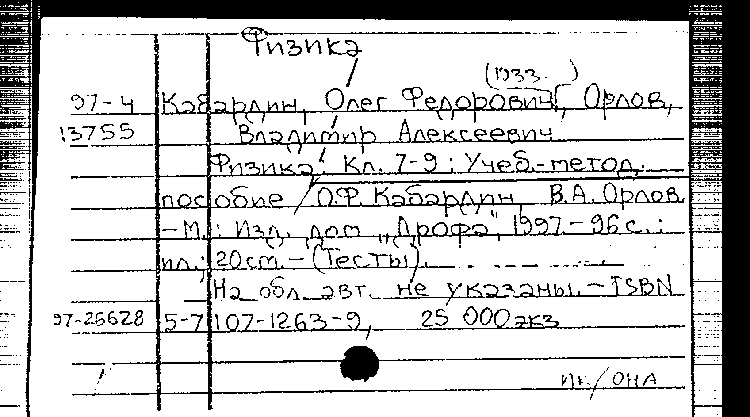 Физика
(1933. )
97-4 Кабардин, Олег Федорович, Орлов,
13755 Владимир Алексеевич
Физика: Кл. 7-9: Учеб.-метод.
пособие / О.Ф. Кабардин, В.А. Орлов
-М.: Изд. дом „Дрофа", 1997.-96с.:
ил.; 20см.-(Тесты).
На обл. авт. не указаны.-ISBN
97-26628 5-7107-1263-9, 25 000экз
ик/ОНА